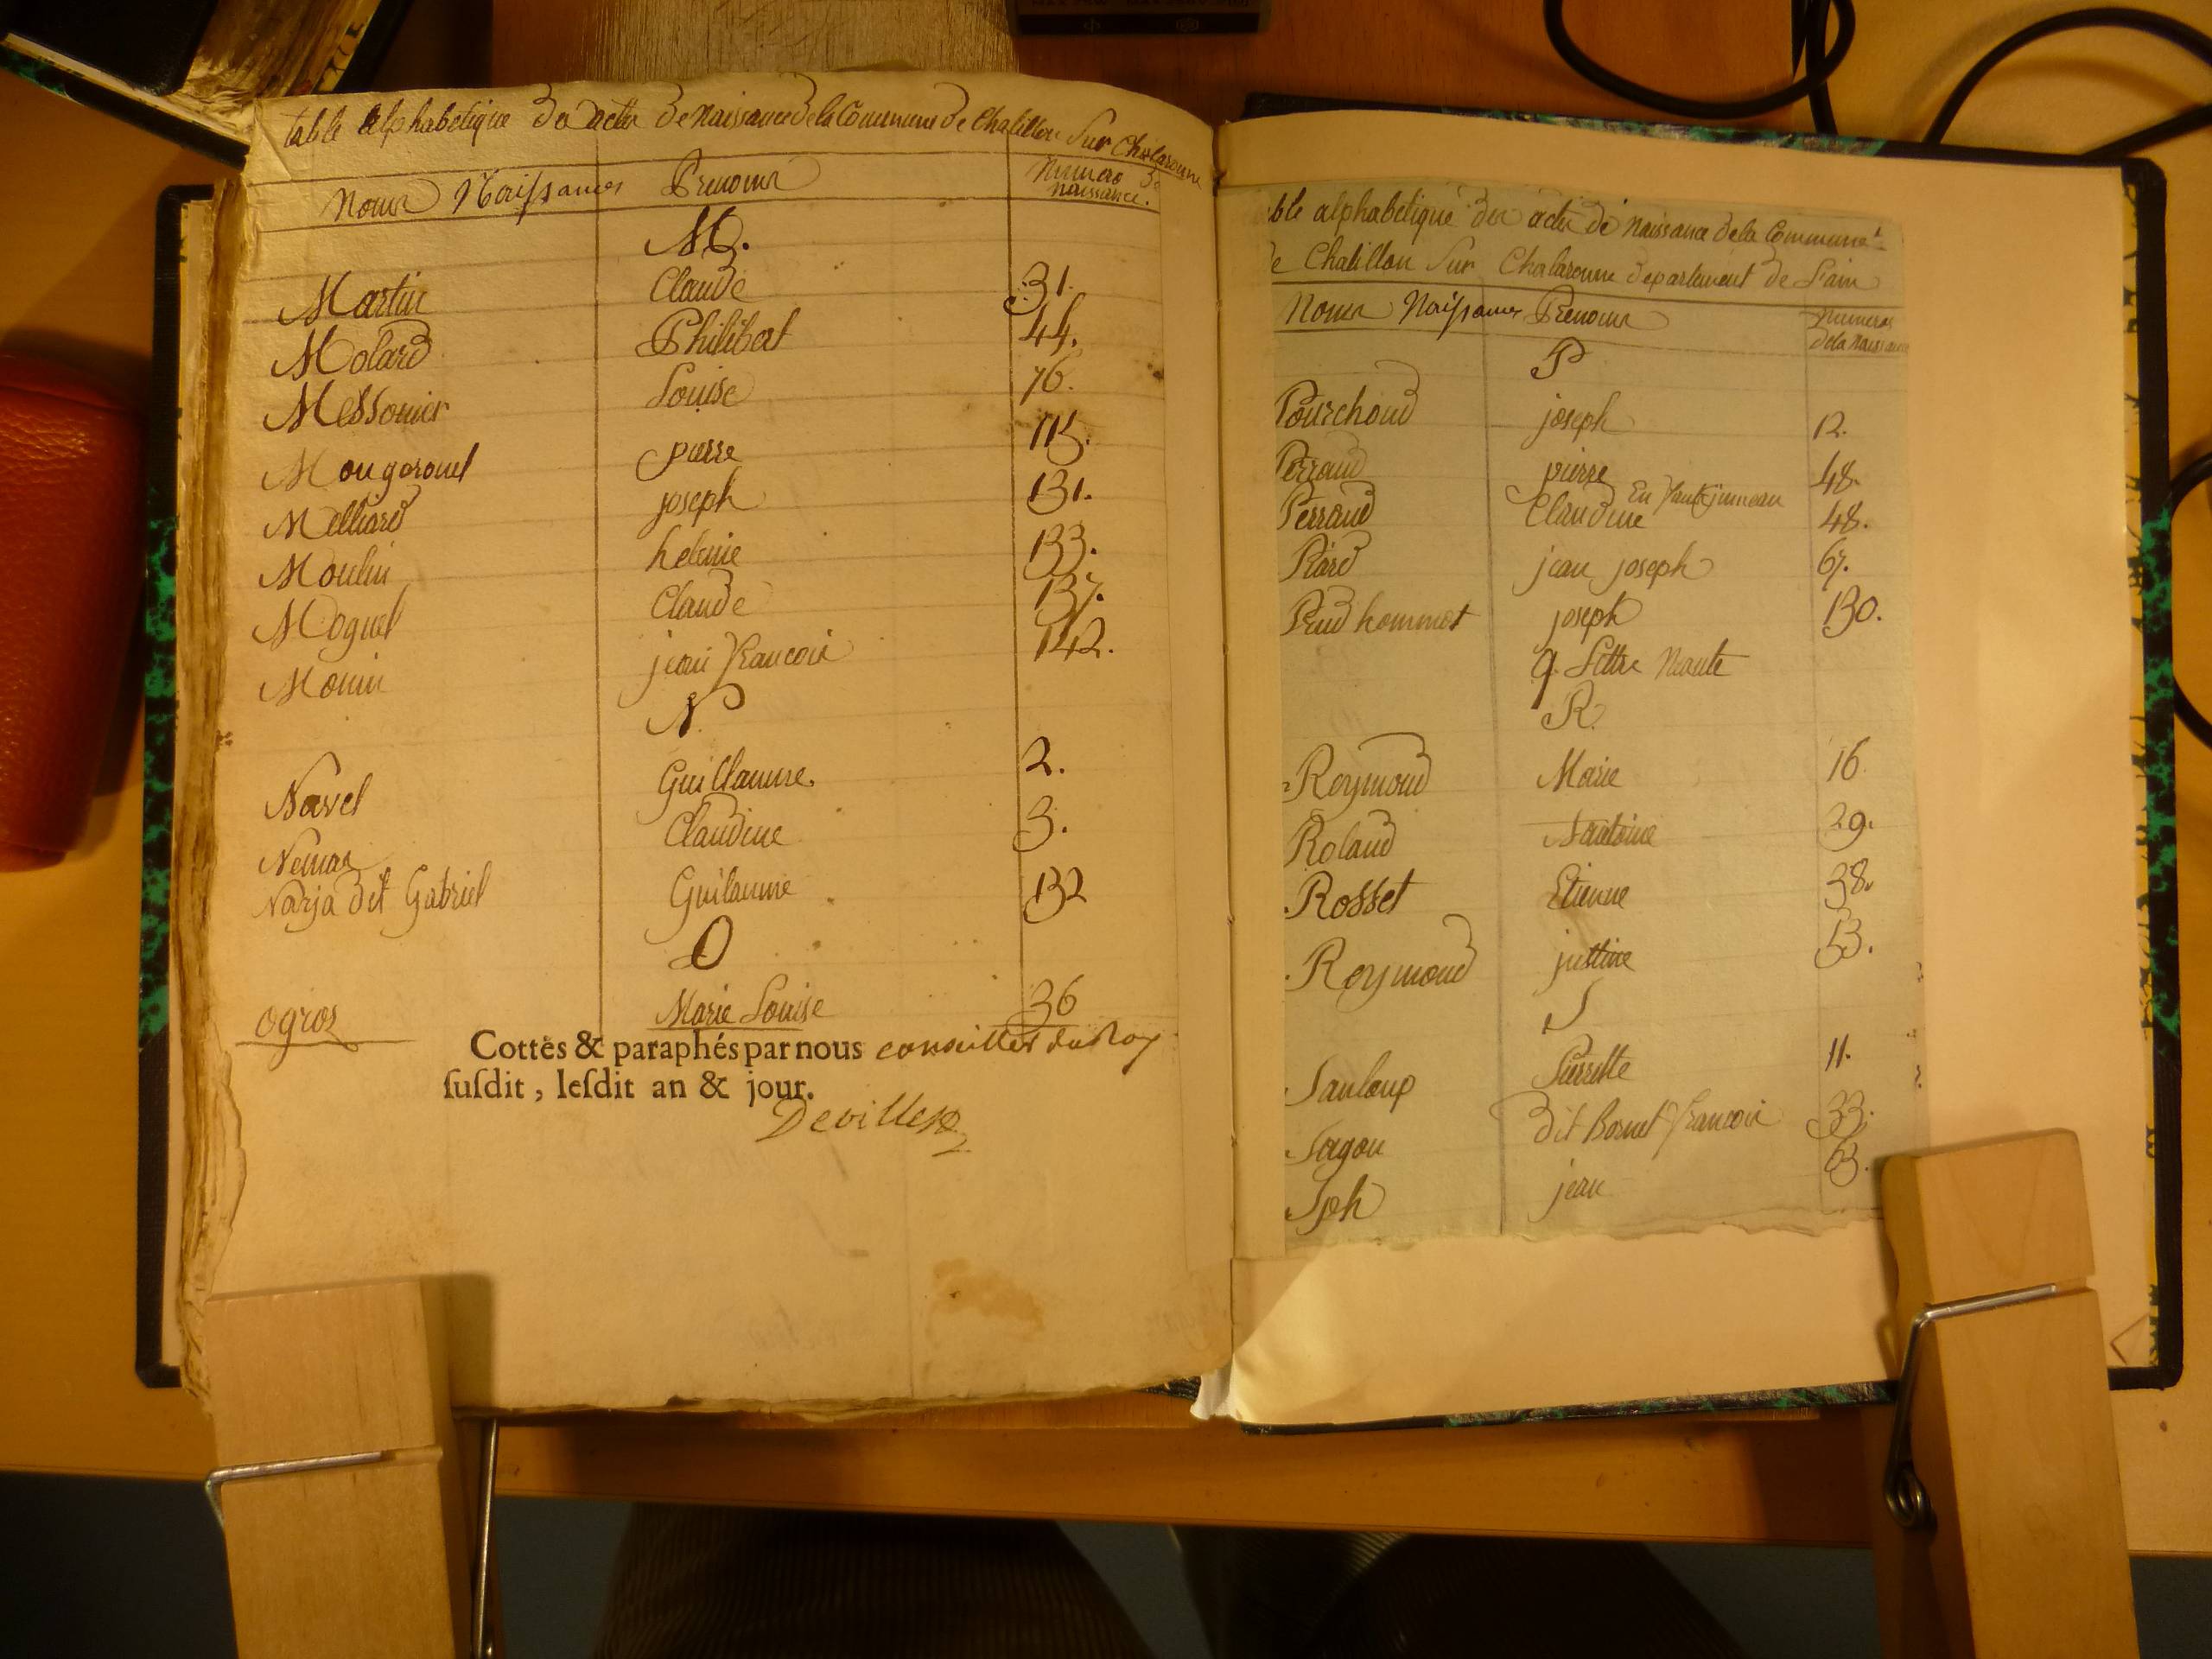 table alphabetique des actes de Naissance de la Commune de Chatillon Sur Chalaronne
Noms Naissances Prenoms Numero de naissance.
M.
Martin Claude 31.
Molard Philibert 44.
Messonier Louise 76.
pierre 115.
Melliard joseph 131.
Moulin helenie 133.
Moguet Claude 137.
Monin jean francois 142.
N
Navel Guillaume. 2.
Claudine 3.
Narja dit Gabriel Guilaume 132
O
ogros Marie Louise 36
Cottés & paraphés par nous conseiller du Roy
susdit, lesdit an & jour.
Devillese
ble alphabetique des actes de Naissance de la Commune
de Chatillon Sur Chalaronne departement de Lain
Noms Naissances Prenoms Numeros de la Naissance
P
Pourchoud joseph 12.
Perraud pierre 48.
Perraud Claudine En faute jumeau 48.
Piard jean joseph 67.
Prud hommet joseph 130.
q. Lettre Nante
R.
Reymond Marie 16
Roland Antoine 29.
Rosset Etienne 38.
Reymond justine 53.
S
Sauloup Pierrette 11.
Sagou dit Bornet francois 33.
Sph jean 63.